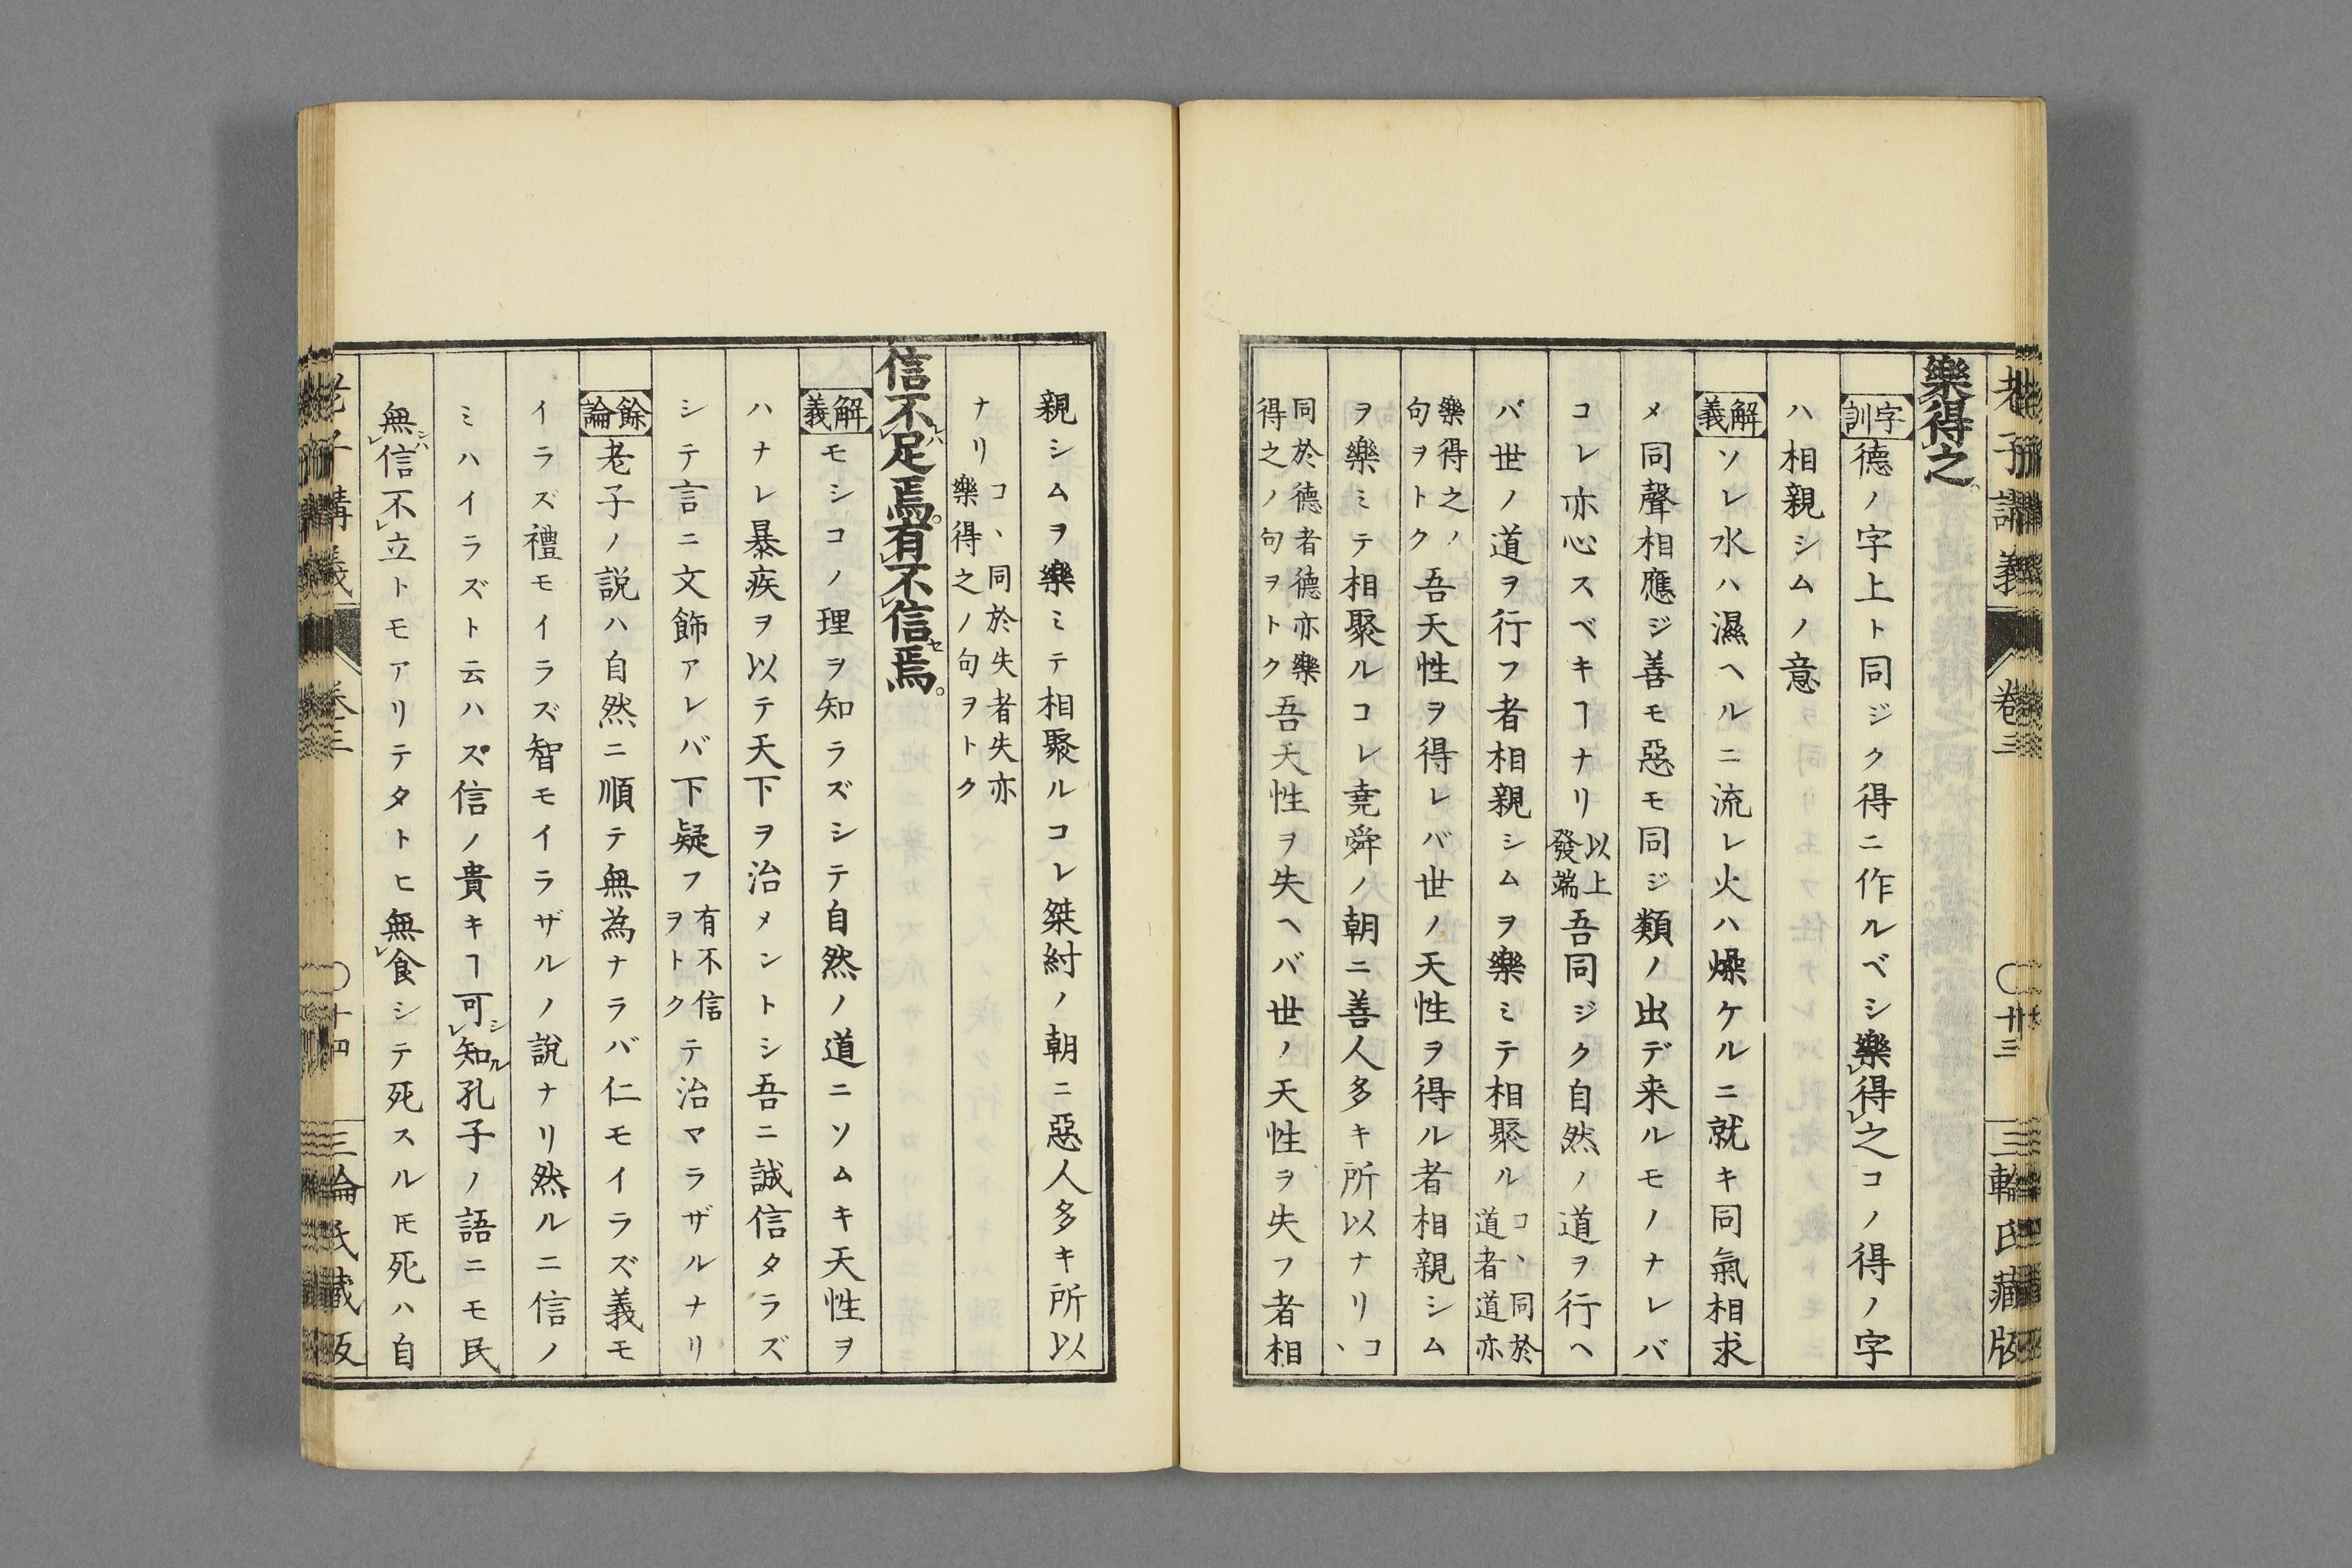 老子講義 卷三 〇廿三 三輪氏藏版
樂得之。
字訓 德ノ字上ト同ジク得ニ作ルベシ樂レ得レ之コノ得ノ字
ハ相親シムノ意
解義 ソレ水ハ濕ヘルニ流レ火ハ燥ケルニ就キ同氣相求
メ同聲相應ジ善モ惡モ同ジ類ノ出デ来ルモノナレバ
コレ亦心スベキヿナリ以上發端吾同ジク自然ノ道ヲ行ヘ
バ世ノ道ヲ行フ者相親シムヲ樂ミテ相聚ルコヽ同於道者道亦
樂得之ノ句ヲトク吾天性ヲ得レバ世ノ天性ヲ得ル者相親シム
ヲ樂ミテ相聚ルコレ堯舜ノ朝ニ善人多キ所以ナリコヽ
同於德者德亦樂得之ノ句ヲトク吾天性ヲ失ヘバ世ノ天性ヲ失フ者相
親シムヲ樂ミテ相聚ルコレ桀紂ノ朝ニ惡人多キ所以
ナリコヽ同於失者失亦樂得之ノ句ヲトク
信不レ足レハ焉。有レ不レ信セ焉。
解義 モシコノ理ヲ知ラズシテ自然ノ道ニソムキ天性ヲ
ハナレ暴疾ヲ以テ天下ヲ治メントシ吾ニ誠信タラズ
シテ言ニ文飾アレバ下疑フ有不信ヲトクテ治マラザルナリ
餘論 老子ノ説ハ自然ニ順テ無為ナラバ仁モイラズ義モ
イラズ禮モイラズ智モイラザルノ說ナリ然ルニ信ノ
ミハイラズト云ハズ信ノ貴キヿ可レシ知ル孔子ノ語ニモ民
無レシハ信不レ立トモアリテタトヒ無レ食シテ死スルモ死ハ自
老子講義 卷三 〇十四 三輪氏藏版